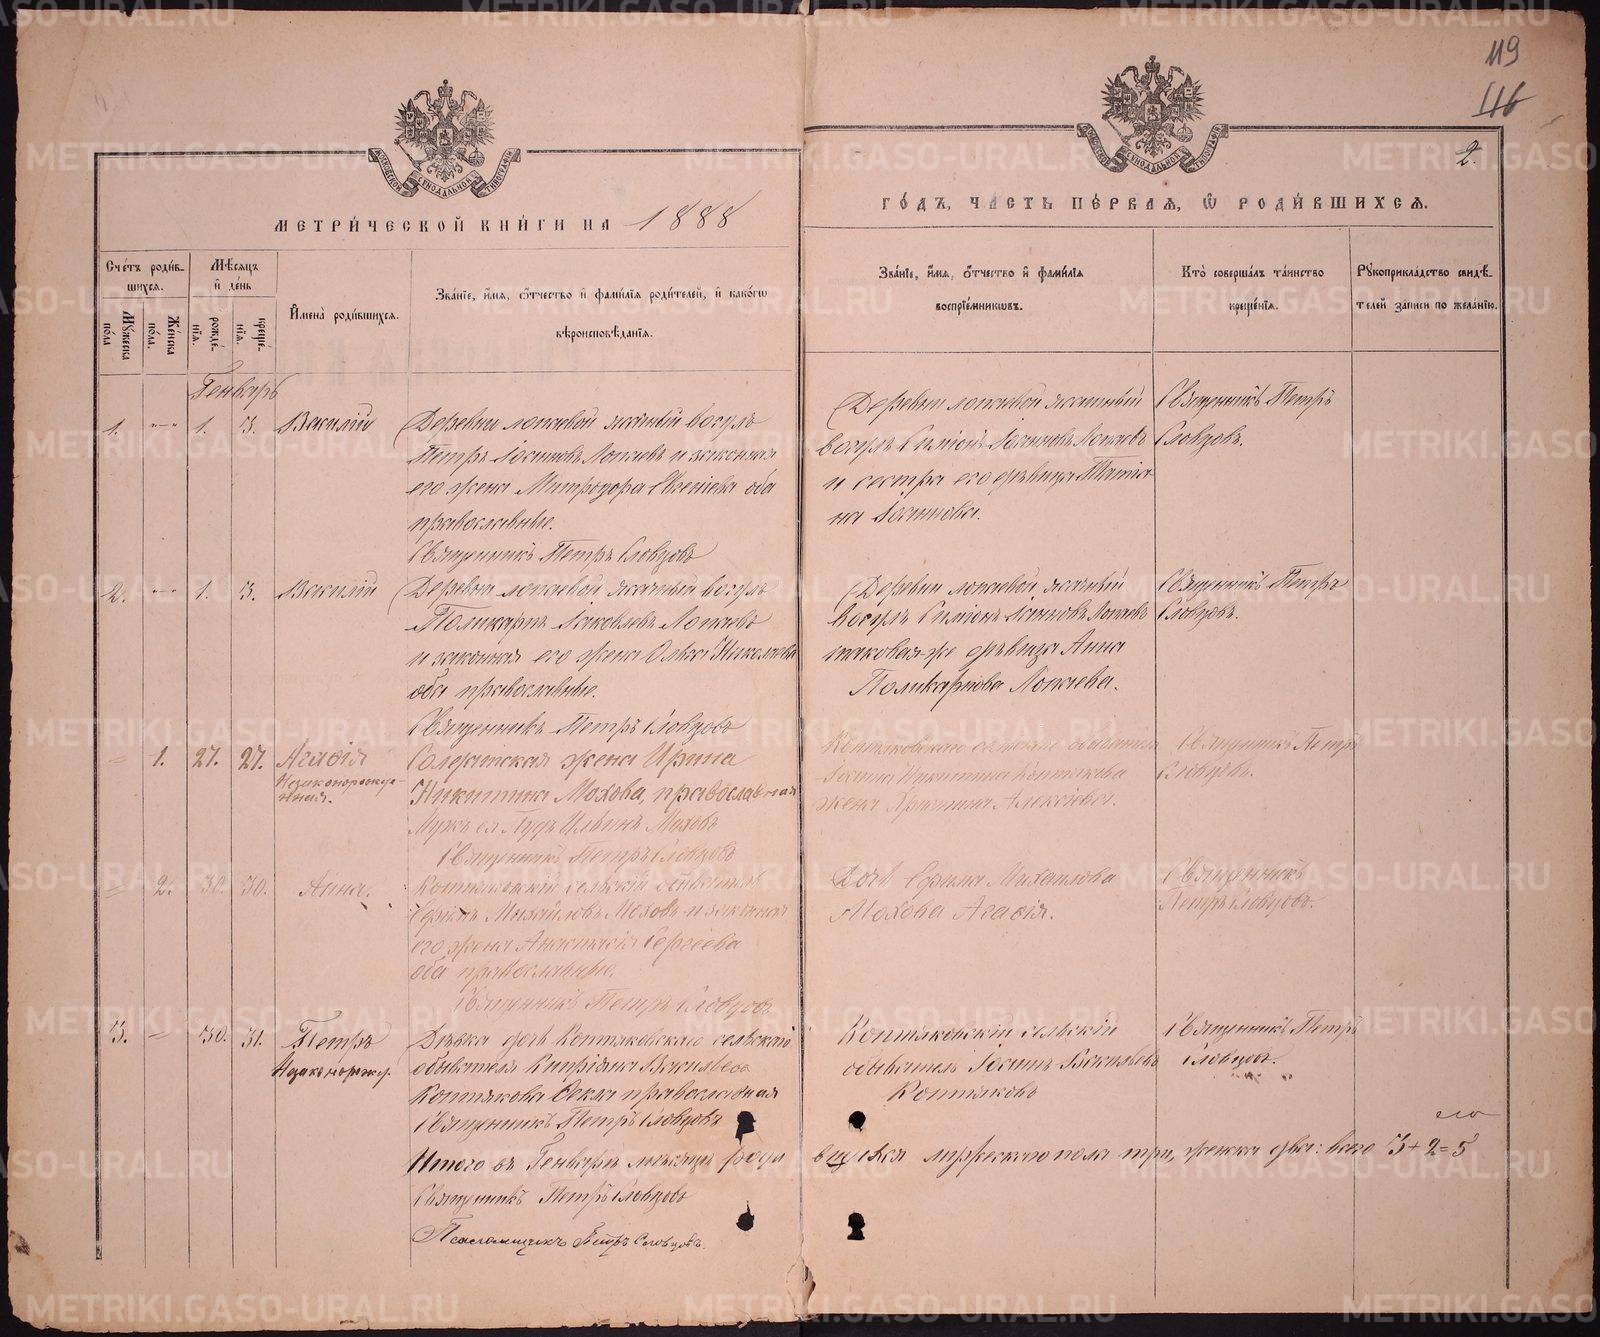 119
116
2.
МОСКОВСКОЙ СУНОДАЛЬНОЙ ТИПОГРАФІИ
МОСКОВСКОЙ СУНОДАЛЬНОЙ ТИПОГРАФІИ
МЕТРИ́ЧЕСКОЙ КНИ́ГИ НА 1888
ГО́ДЪ, ЧА́СТЬ ПЕ́РВАЯ, Ѡ РОДИ́ВШИХСЯ.
Сче́тъ роди́в-
шихся.
Мѣ́сяцъ
и҆ де́нь
Мꙋжеска по́ла
Же́нска по́ла.
рожде́-
нїя.
креще́-
нїя.
И҆мена̀ роди́вшихся.
Зва́нїе, и҆́мя, ѻ҆́тчество и҆ фами́лїя роди́телей, и҆ како́гѡ
вѣроисповѣ́данїя.
Зва́нїе, и҆́мя, ѻ҆́тчество и҆ фами́лїя
воспрїе́мникѡвъ.
Кто̀ соверша́лъ та́инство
креще́нїя.
Рꙋкоприкла́дство свидѣ́-
телей записи по жела́нїю.
Генварь
1. 1. 3. Василій
Деревни лопаевой ясачный вогулъ
Петръ Іоанновъ Лопаевъ и законная
его жена Митродора оба
православные.
Священникъ Петръ Словцовъ
Деревни лопаевой ясачный
вогулъ Симіонъ Іоанновъ Лопаевъ
и сестра его дѣвица Татiа-
на Іоаннова.
Священникъ Петръ
Словцовъ.
2. 1. 3. Василій
Деревни лопаевой ясачный вогулъ
Поликарпъ Іаковлевъ Лопаевъ
и законная его жена Ольга Николаева
оба православные.
Священникъ Петръ Словцовъ
Деревни лопаевой ясачный
вогулъ Симіонъ Іоанновъ Лопаевъ
таковая-же дѣвица Анна
Поликарпова Лопаева.
Священникъ Петръ
Словцовъ.
1. 27. 27. Агафія
Незаконорожде-
нная.
Солдатская жена Ирина
Никитина Мохова, православная
Мужъ ея Ильинъ Моховъ
Священникъ Петръ Словцовъ
Коптяковскаго сельскаго обывателя
Іоанна Никитина Коптякова
жена Христина Алексіева.
Священникъ Петръ
Словцовъ.
2. 30. 30. Анна.
Коптяковскій сельскій обыватель
Ефимъ Михайловъ Моховъ и законная
его жена Анастасія Сергѣева
оба православные.
Священникъ Петръ Словцовъ
Дочь Ефима Михаилова
Мохова Агафія.
Священникъ
Петръ Словцовъ.
3. 30. 31. Петръ
Незаконорожд.
Дѣвка дочь Коптяковскаго сельскаго
обывателя Кипріяна Васильева
Коптякова Фекла православная
Священникъ Петръ Словцовъ
Коптяковскій сельскій
обыватель Іоаннъ Васильевъ
Коптяковъ
Священникъ Петръ
Словцовъ.
Итого въ Генварѣ мѣсяцѣ роди вшихся мужескаго пола три, женска два: всего 3+2=5
Священникъ Петръ Словцовъ
Псаломщикъ Петръ Словцовъ.
METRIKI.GASO-URAL.RU